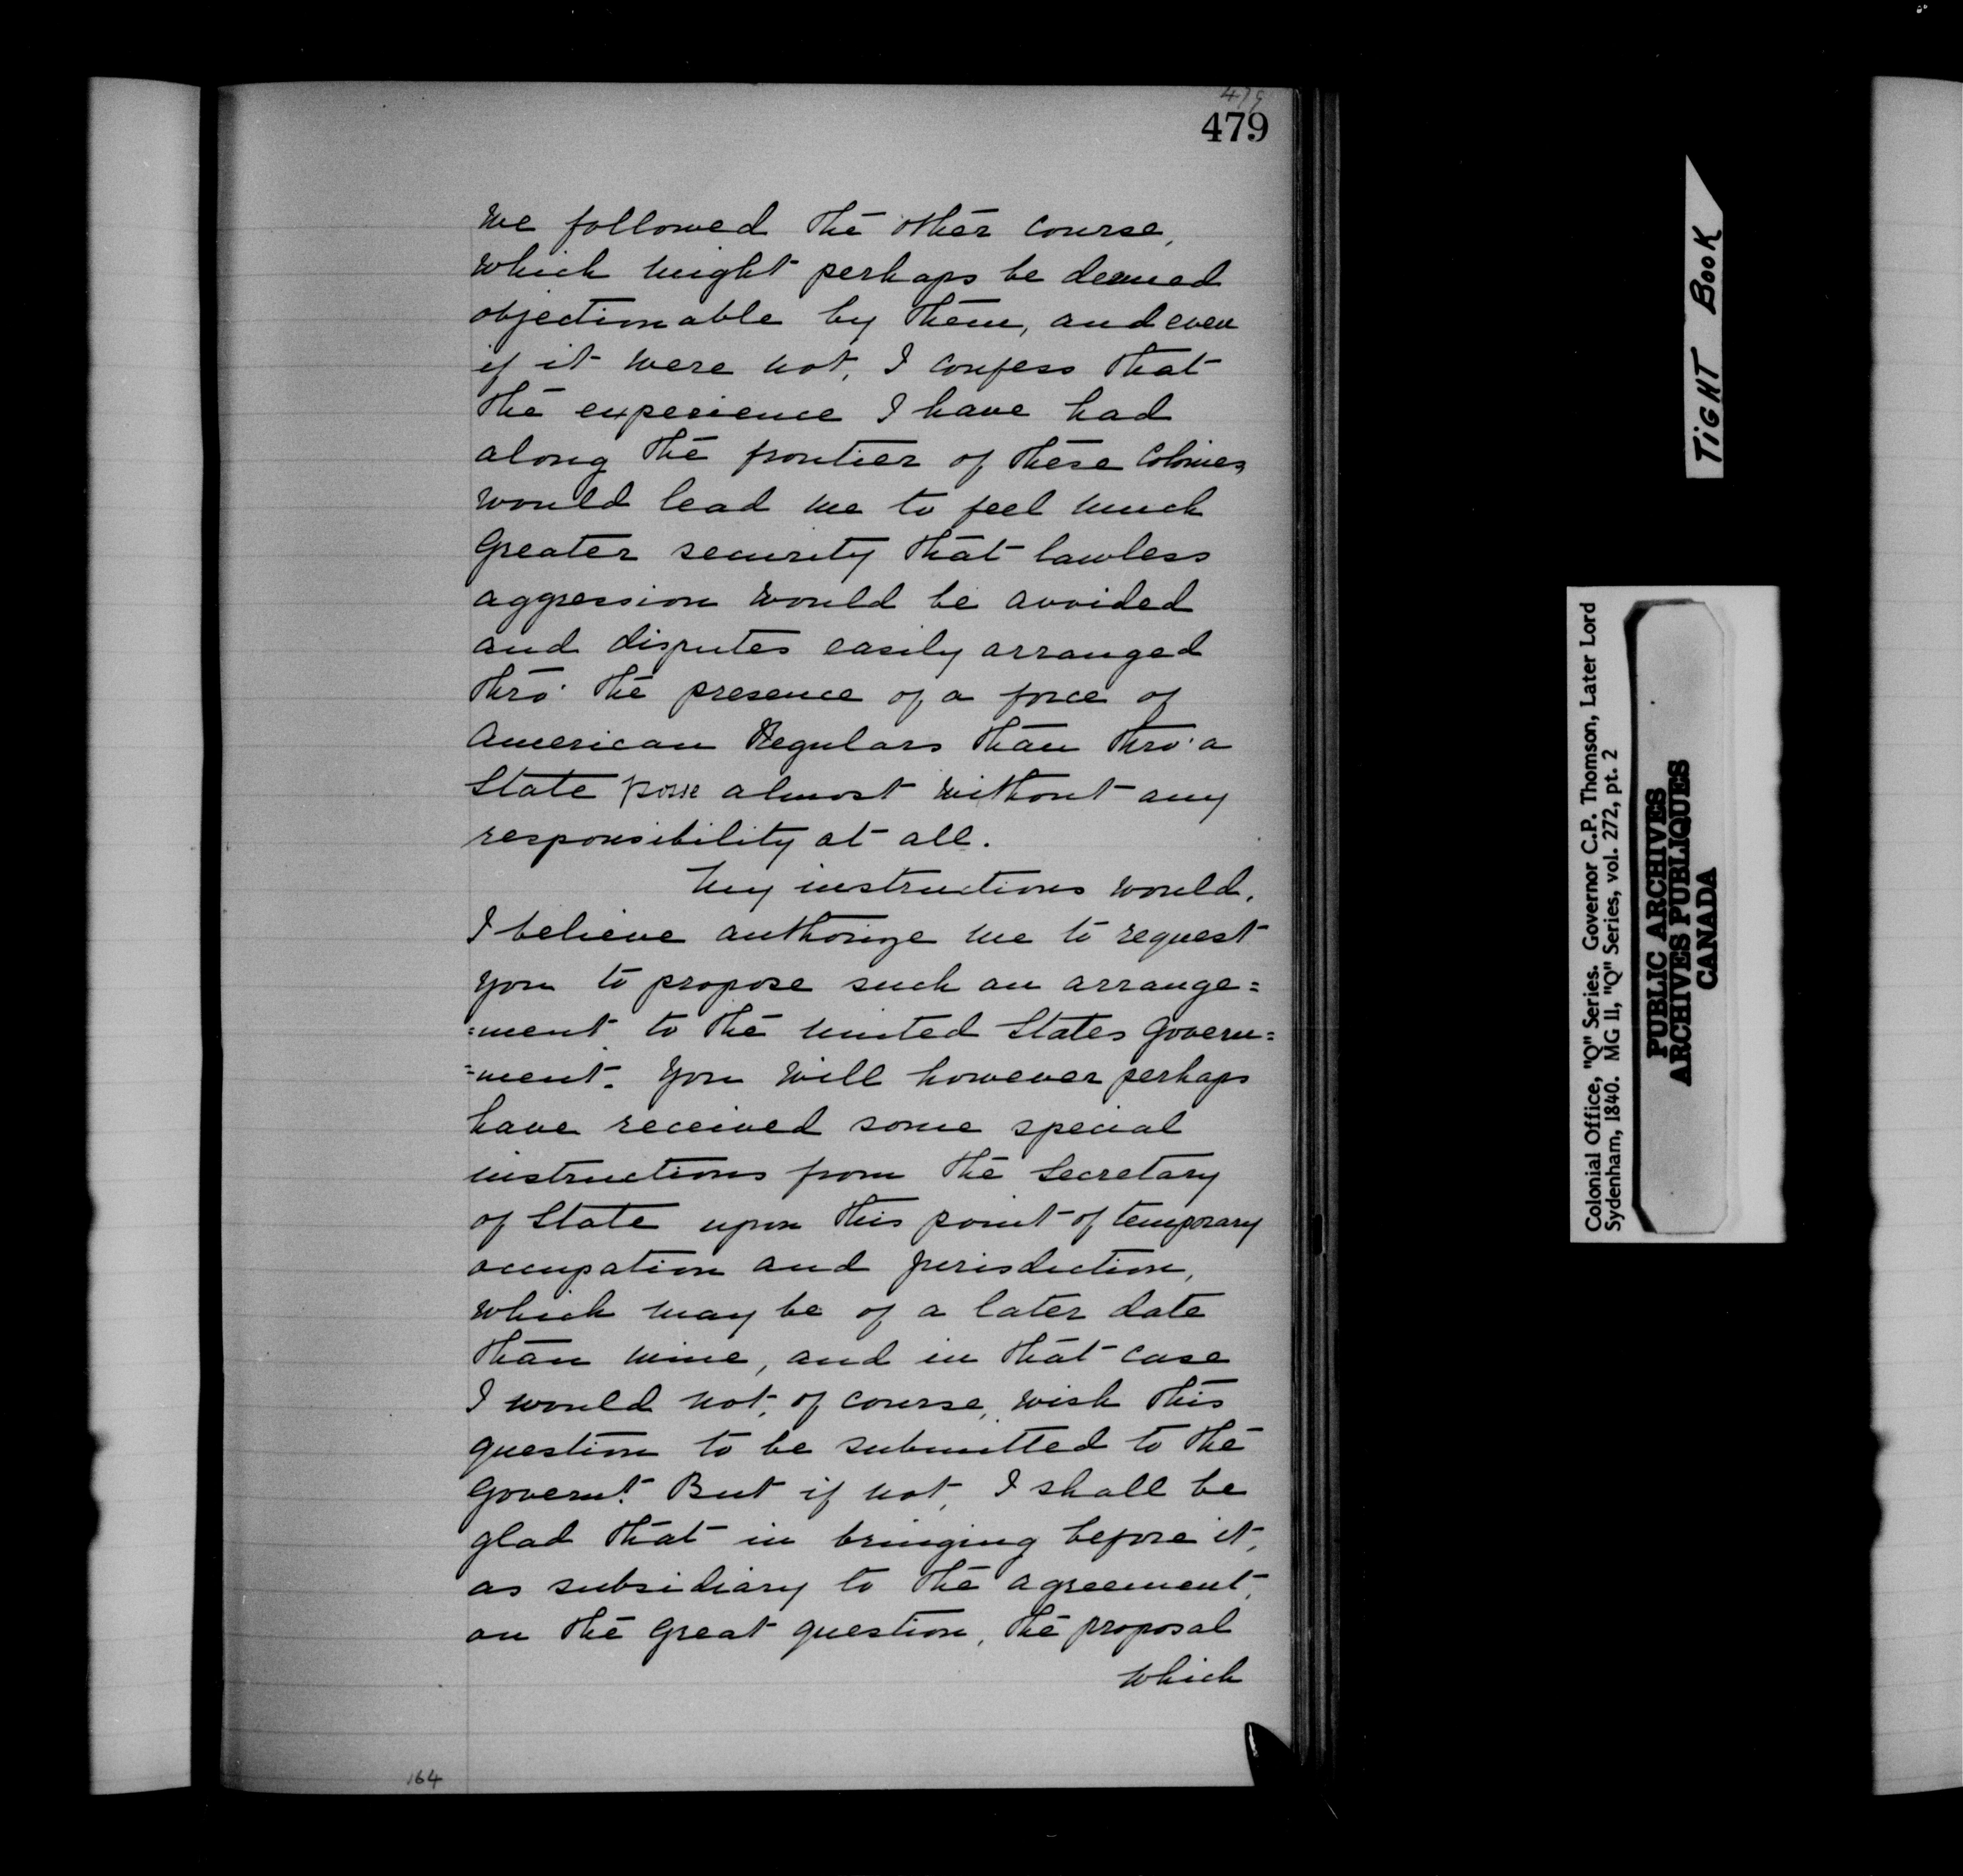 479
479
we followed the other course,
which might perhaps be deemed
objectionable by them, and even
if it were not, I confess that
the experience I have had
along the frontier of these Colonies
would lead me to feel much
greater security that lawless
aggression would be avoided
and disputes easily arranged
thro' the presence of a force of
American Regulars than thro' a
State posse almost without any
responsibility at all.
My instructions would,
I believe authorize me to request
you to propose such an arrange=
=ment to the United States Govern=
=ment. You will however perhaps
have received some special
instructions from the Secretary
of State upon this point of temporary
occupation and jurisdiction,
which may be of a later date
than mine, and in that case
I would not, of course, wish this
question to be submitted to the
Governt. But if not, I shall be
glad that in bringing before it,
as subsidiary to the agreement,
on the great question, the proposal
which
164
TIGHT BOOK
Colonial Office, "Q" Series. Governor C.P. Thomson, Later Lord
Sydenham, 1840. MG 11, "Q" Series, vol. 272, pt. 2
PUBLIC ARCHIVES
ARCHIVES PUBLIQUES
CANADA